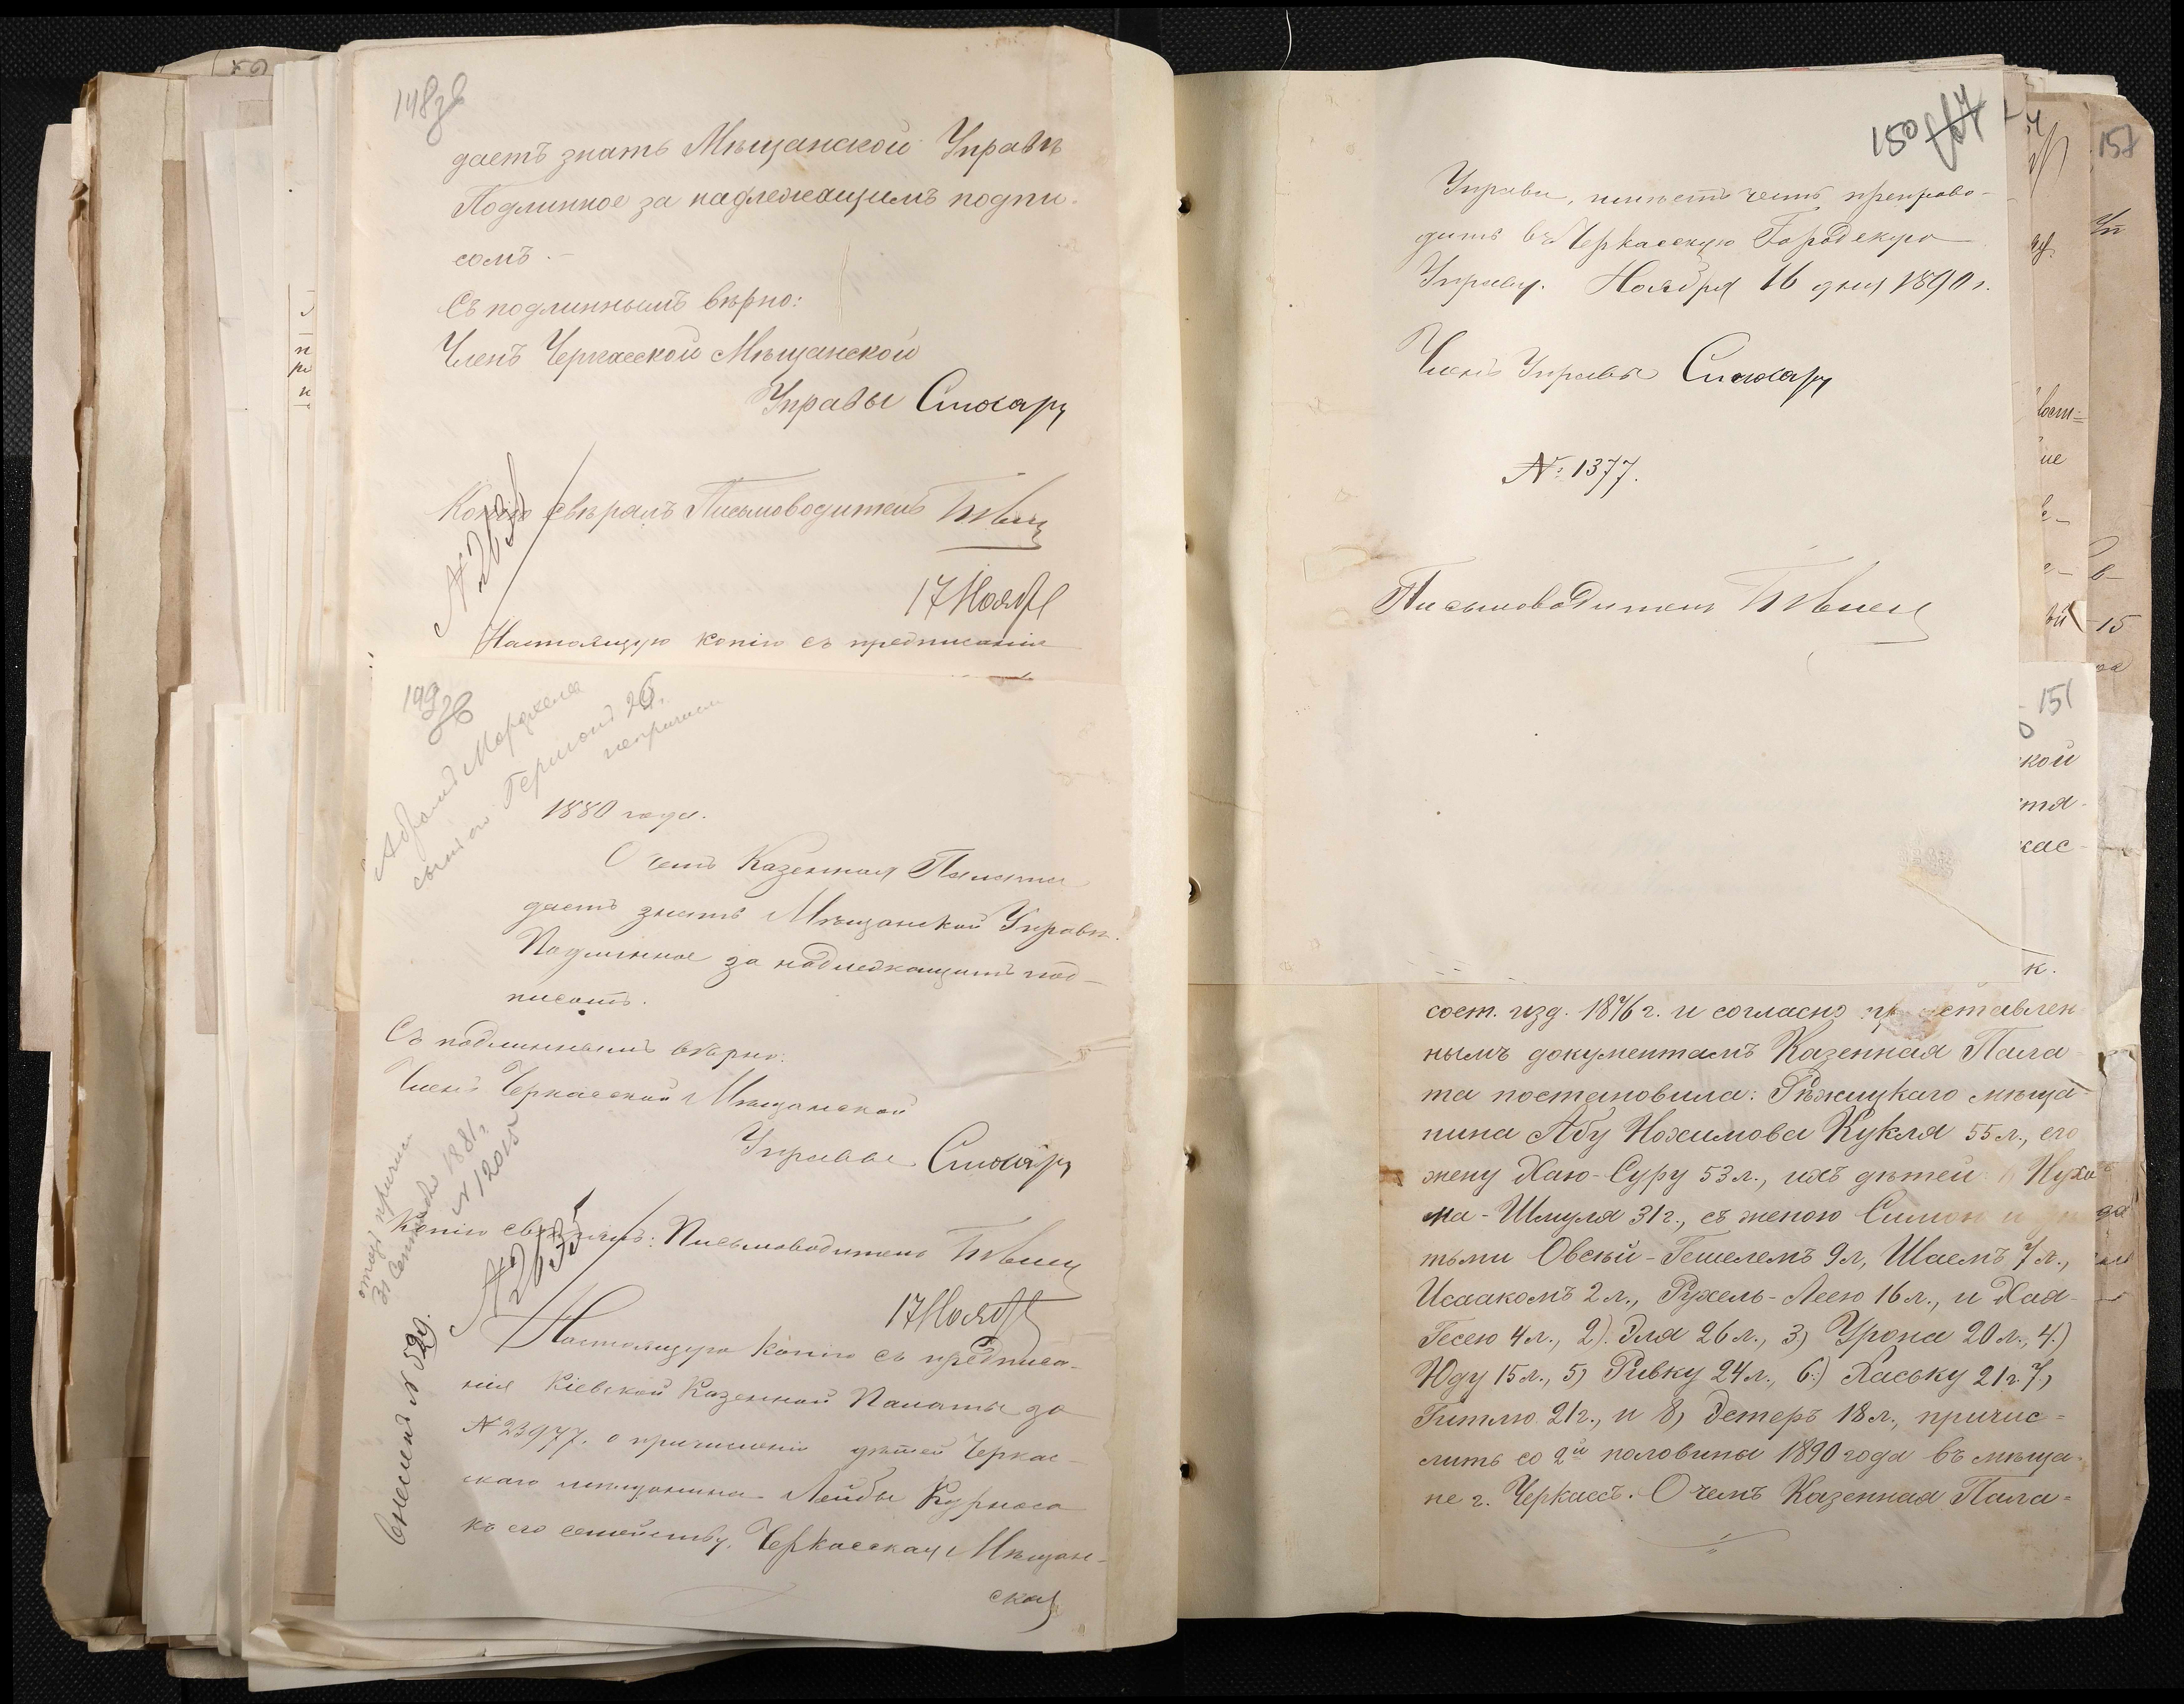 148об
даетъ знать Мѣщанской Управѣ
Подлинное за надлежащимъ подпи-
сомъ.-
Съ подлиннымъ вѣрно:
Членъ Черкасской Мѣщанской
Управы Слюсарь
Копію свѣрялъ Письмоводитель
17 Ноября
Настоящую копію съ предписанія
149об
1880 года.
О чемъ Казенная Палата
даетъ знать Мѣщанской Управѣ.
Подлинное за надлежащимъ под-
писомъ.
Съ подлиннымъ вѣрно:
Членъ Черкасской Мѣщанской
Управы Слюсарь
Копію свѣрялъ: Письмоводитель
17 Ноября
Настоящую копію съ предписа-
нія Кіевской Казенной Палаты за
№ 23977. о причисленіи дѣтей Черкас-
скаго мѣщанина Лейбы Курноса
къ его семейству, Черкасская Мѣщан-
ская
150
Управа, имѣетъ честь препрово-
дить въ Черкасскую Городскую
Управу. Ноября 16 дня 1890 г.
Членъ Управы Слюсарь
№ 1377.
Письмоводитель
151
сост. изд. 1876 г. и согласно представлен
нымъ документамъ Казенная Пала-
та постановила: Рѣжицкаго мѣща-
нина Абу Нохимова Кукля 55 л., его
жену Хаю-Суру 53 л., ихъ дѣтей Нухи
ма-Шмуля 31 г., съ женою
тьми Овсѣй-Гешелемъ 9 л, Шаемъ 7 л.,
Исаакомъ 2 л., Рухель-Леею 16 л., и Хая-
Гесею 4 л., 2). Эля 26 л., 3) Урона 20 л., 4.)
Юду 15 л., 5) Ривку 24 л., 6.) Хаську 21 г. 7)
Гитлю 21 г., и 8) Эстеръ 18 л., причис=
лить со 2й половины 1890 года въ мѣща-
не г. Черкассъ. О чемъ Казенная Пала=